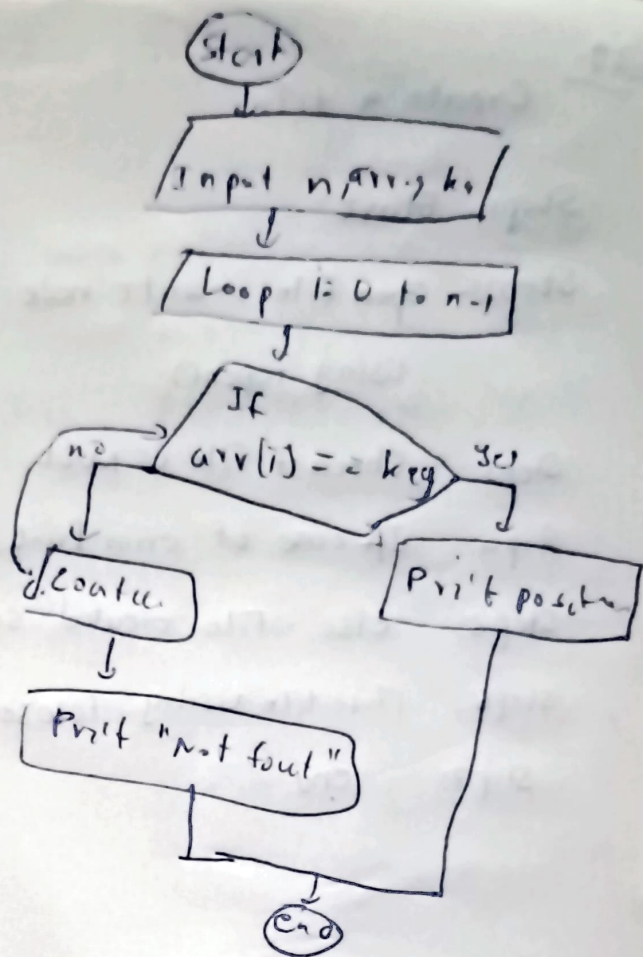 Start
Input n, arr, ke
Loop i= 0 to n-1
If
arr[i] == key
no
yes
Print position
Print "Not fout"
End